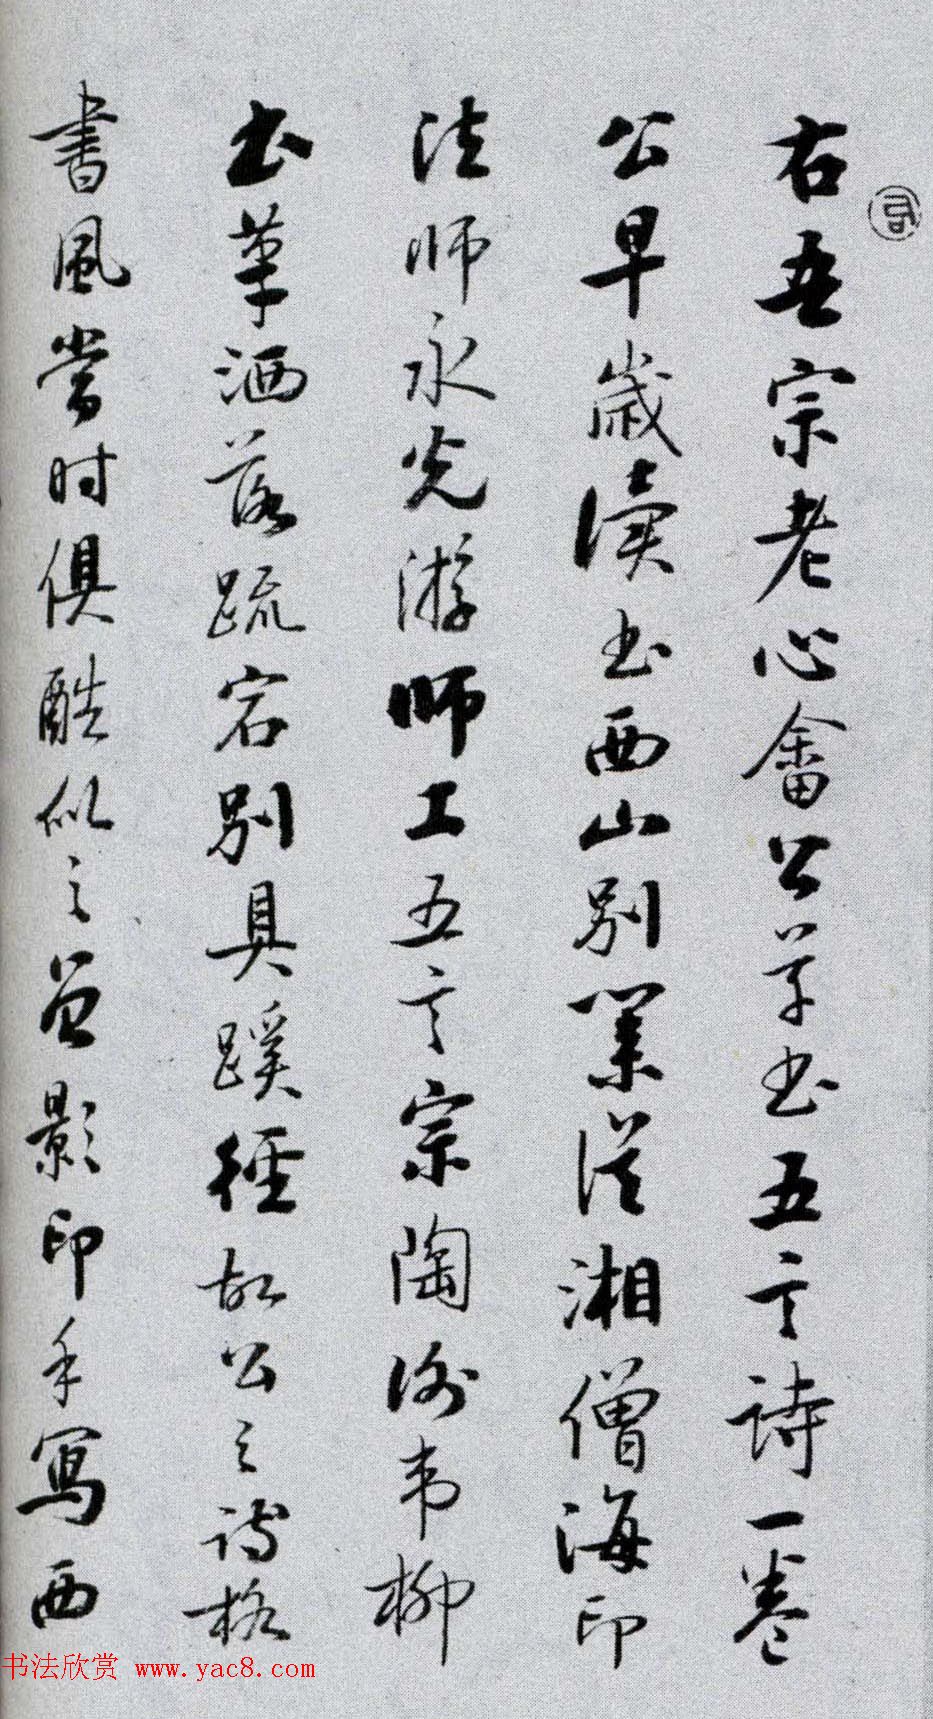 右吾宗老心畬公草书五言诗一卷
公早歲讀书西山别業從湘僧海印
法师永光游师工五言宗陶谢韦柳
书草洒落疏宕别具蹊徑故公之诗格
書風當时俱酷似之曾影印手寫西
书法欣赏 www.yac8.com